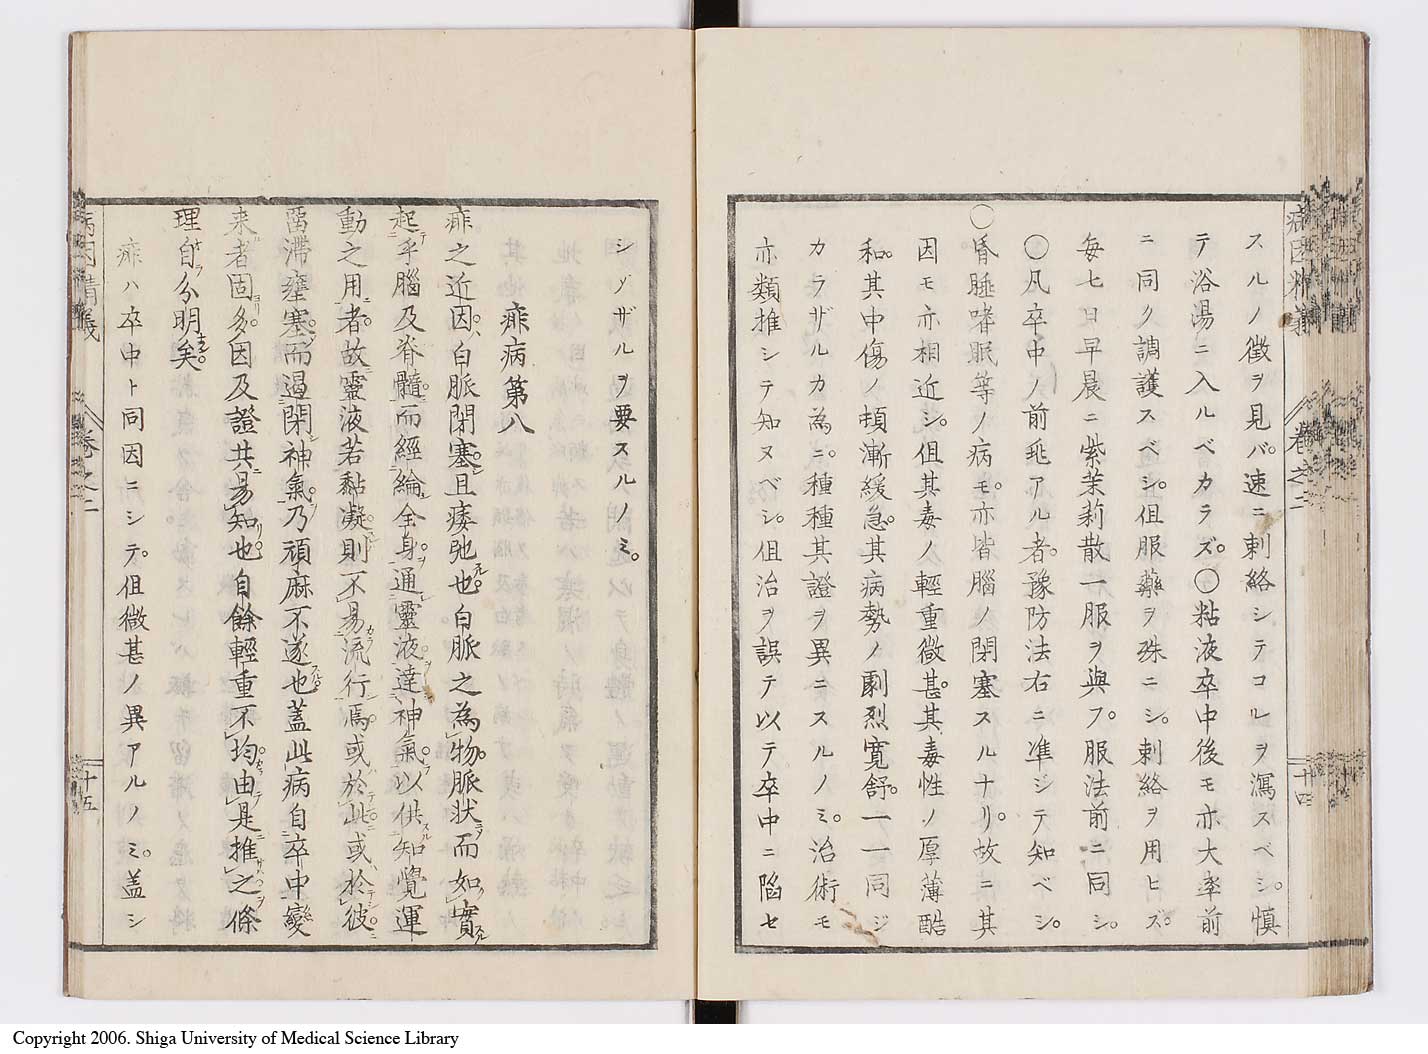 病因精義
卷之二
十四
スルノ徴ヲ見バ。速ニ刺絡シテコルヲ瀉スベシ。慎
テ浴湯ニ入ルベカラズ。〇粘液卒中後モ亦大率前
ニ同ク調護スベシ。但服藥ヲ殊ニシ。刺絡ヲ用ヒズ。
毎七日早晨ニ紫茉莉散一服ヲ與フ。服法前ニ同シ。
〇凡卒中ノ前兆アル者。豫防法右ニ準ジテ知ベシ。
〇昏睡嗜眠等ノ病モ。亦皆腦ノ閉塞スルナリ。故ニ其
因モ亦相近シ。但其毒ノ輕重微甚。其毒性ノ厚薄酷
和。其中傷ノ頓漸緩急。其病勢ノ劇烈寛舒。一一同ジ
カラザルカ為ニ。種種其證ヲ異ニスルノミ。治術モ
亦類推シテ知ヌベシ。但治ヲ誤テ以テ卒中ニ陷セ
シメザルヲ要スルノミ。
痱病第八
痱之近因。白脈閉塞且痿弛也白脈之為物。脈状而如實
起乎腦及脊髓。而經綸全身。通靈液達神氣。以供知覺運
動之用者。故靈液若黏凝。則不易流行焉。或於此或於彼
畱滯壅塞。而遏閉神氣。乃頑麻不遂也蓋此病自卒中變
来者固多。因及證共易知也。自餘輕重不均。由是推之。條
理自分明矣。
痱ハ卒中ト同因ニシテ。但微甚ノ異アルノミ。蓋シ
病因精義
卷之二
十五
Copyright 2006. Shiga University of Medical Science Library